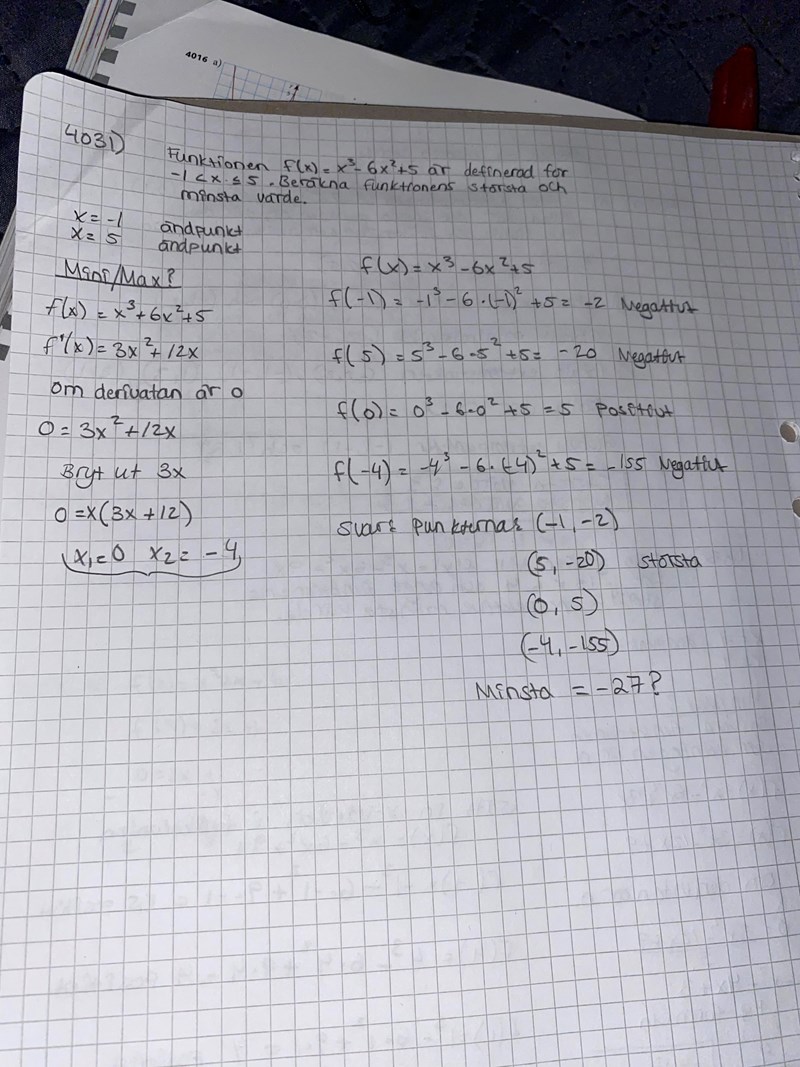 4016 a)
4031)
Funktionen f(x) = x³ - 6x² + 5 är definerad för
-1 < x ≤ 5. Beräkna funktionens största och
minsta värde.
x = -1 ändpunkt
x = 5 ändpunkt
Mini/Max?
f(x) = x³ + 6x² + 5
f'(x) = 3x² + 12x
om derivatan är 0
0 = 3x² + 12x
Bryt ut 3x
0 = x(3x + 12)
x₁ = 0 x₂ = -4
f(x) = x³ - 6x² + 5
f(-1) = -1³ - 6·(-1)² + 5 = -2 Negativt
f(5) = 5³ - 6·5² + 5 = -20 Negativt
f(0) = 0³ - 6·0² + 5 = 5 Positivt
f(-4) = -4³ - 6·(-4)² + 5 = -155 Negativt
svar: punkterna: (-1, -2)
(5, -20) största
(0, 5)
(-4, -155)
Minsta = -27?